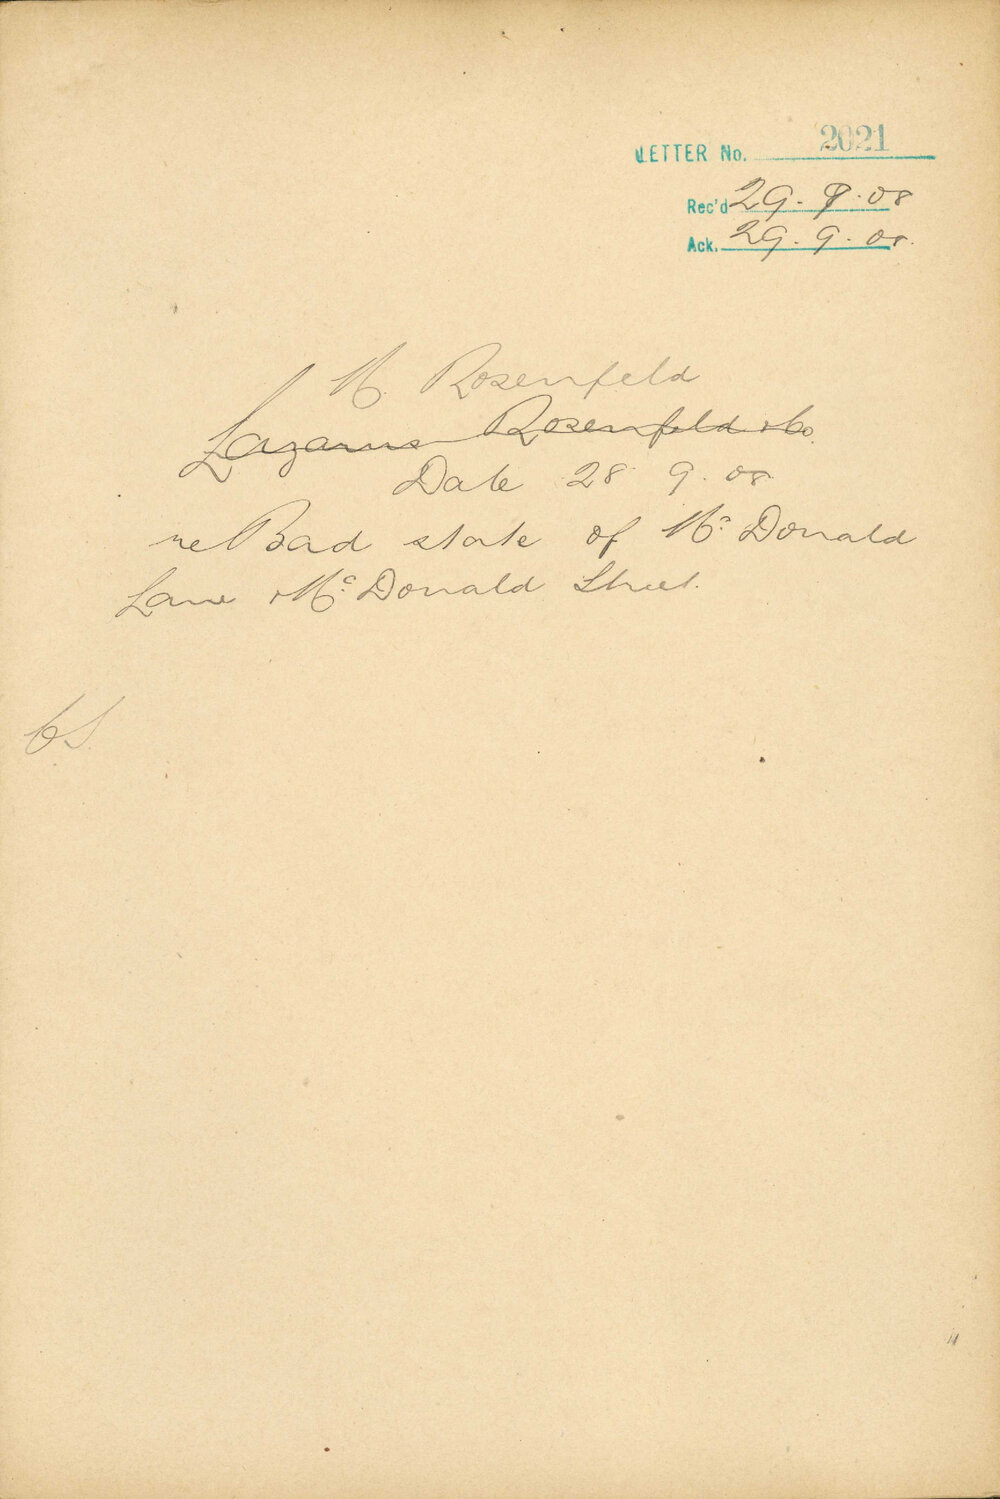 LETTER No. 2021
Rec'd 29. 9. 08
Ack. 29. 9. 08.
M. Rosenfeld
Lazarus Rosenfeld & Co.
Date 28 9. 08
re Bad state of Mc Donald
Lane & Mc Donald Street.
CS.